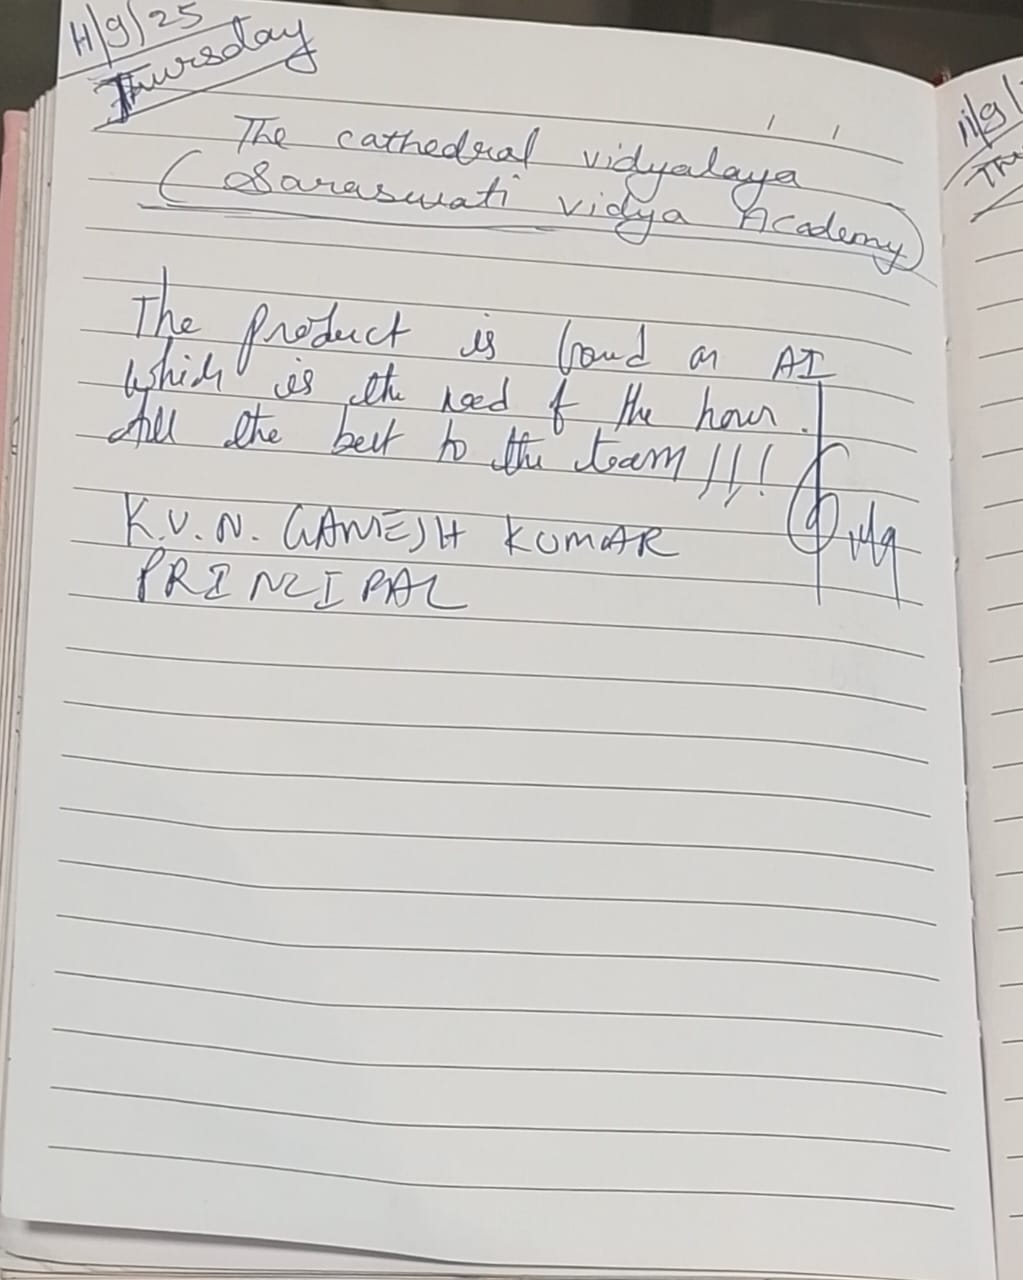 11/9/25
Thursday
The cathedral vidyalaya
(Saraswati vidya Academy)
The product is based on AI
which is the need of the hour.
All the best to the team !!!
K.V.N. GANESH KUMAR
PRINCIPAL
11/9/